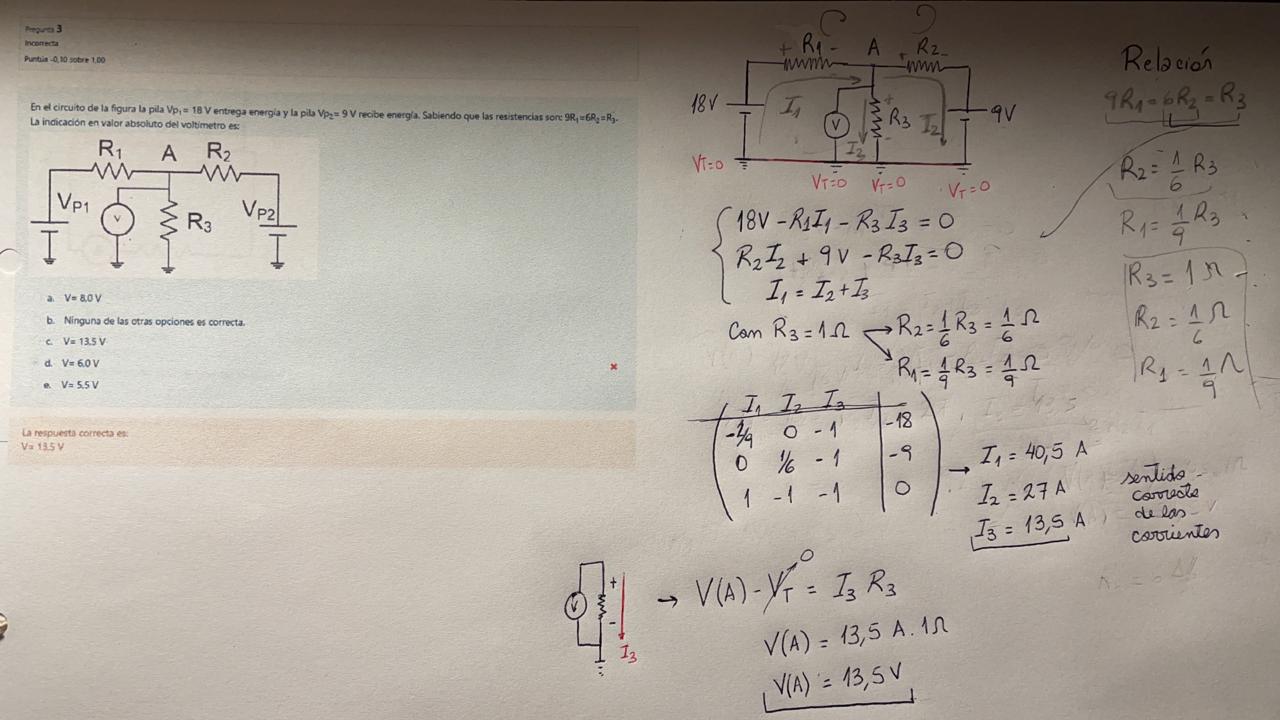 Pregunta 3
Incorrecta
Puntúa -0,10 sobre 1,00
En el circuito de la figura la pila Vp₁= 18 V entrega energía y la pila Vp₂= 9 V recibe energía. Sabiendo que las resistencias son: 9R₁=6R₂=R₃.
La indicación en valor absoluto del voltímetro es:
R₁ A R₂
V_P1 V R₃ V_P2
a. V= 8.0 V
b. Ninguna de las otras opciones es correcta.
c. V= 13.5 V
d. V= 6.0 V
e. V= 5.5 V
La respuesta correcta es:
V= 13.5 V
+ R₁ - A + R₂ -
18V I₁ V I₃ + R₃ - I₂ 9V
V_T=0 V_T=0 V_T=0 V_T=0
18V - R₁I₁ - R₃I₃ = 0
R₂I₂ + 9V - R₃I₃ = 0
I₁ = I₂ + I₃
Con R₃ = 1Ω → R₂ = 1/6 R₃ = 1/6 Ω
→ R₁ = 1/9 R₃ = 1/9 Ω
I₁ I₂ I₃
-1/9 0 -1 -18
0 1/6 -1 -9
1 -1 -1 0
→ I₁ = 40,5 A
I₂ = 27 A
I₃ = 13,5 A
sentido
correcto
de las
corrientes
Relación
9R₁ = 6R₂ = R₃
R₂ = 1/6 R₃
R₁ = 1/9 R₃
R₃ = 1Ω
R₂ = 1/6 Ω
R₁ = 1/9 Ω
V + - I₃
→ V(A) - V_T = I₃ R₃
0
V(A) = 13,5 A . 1Ω
V(A) = 13,5 V